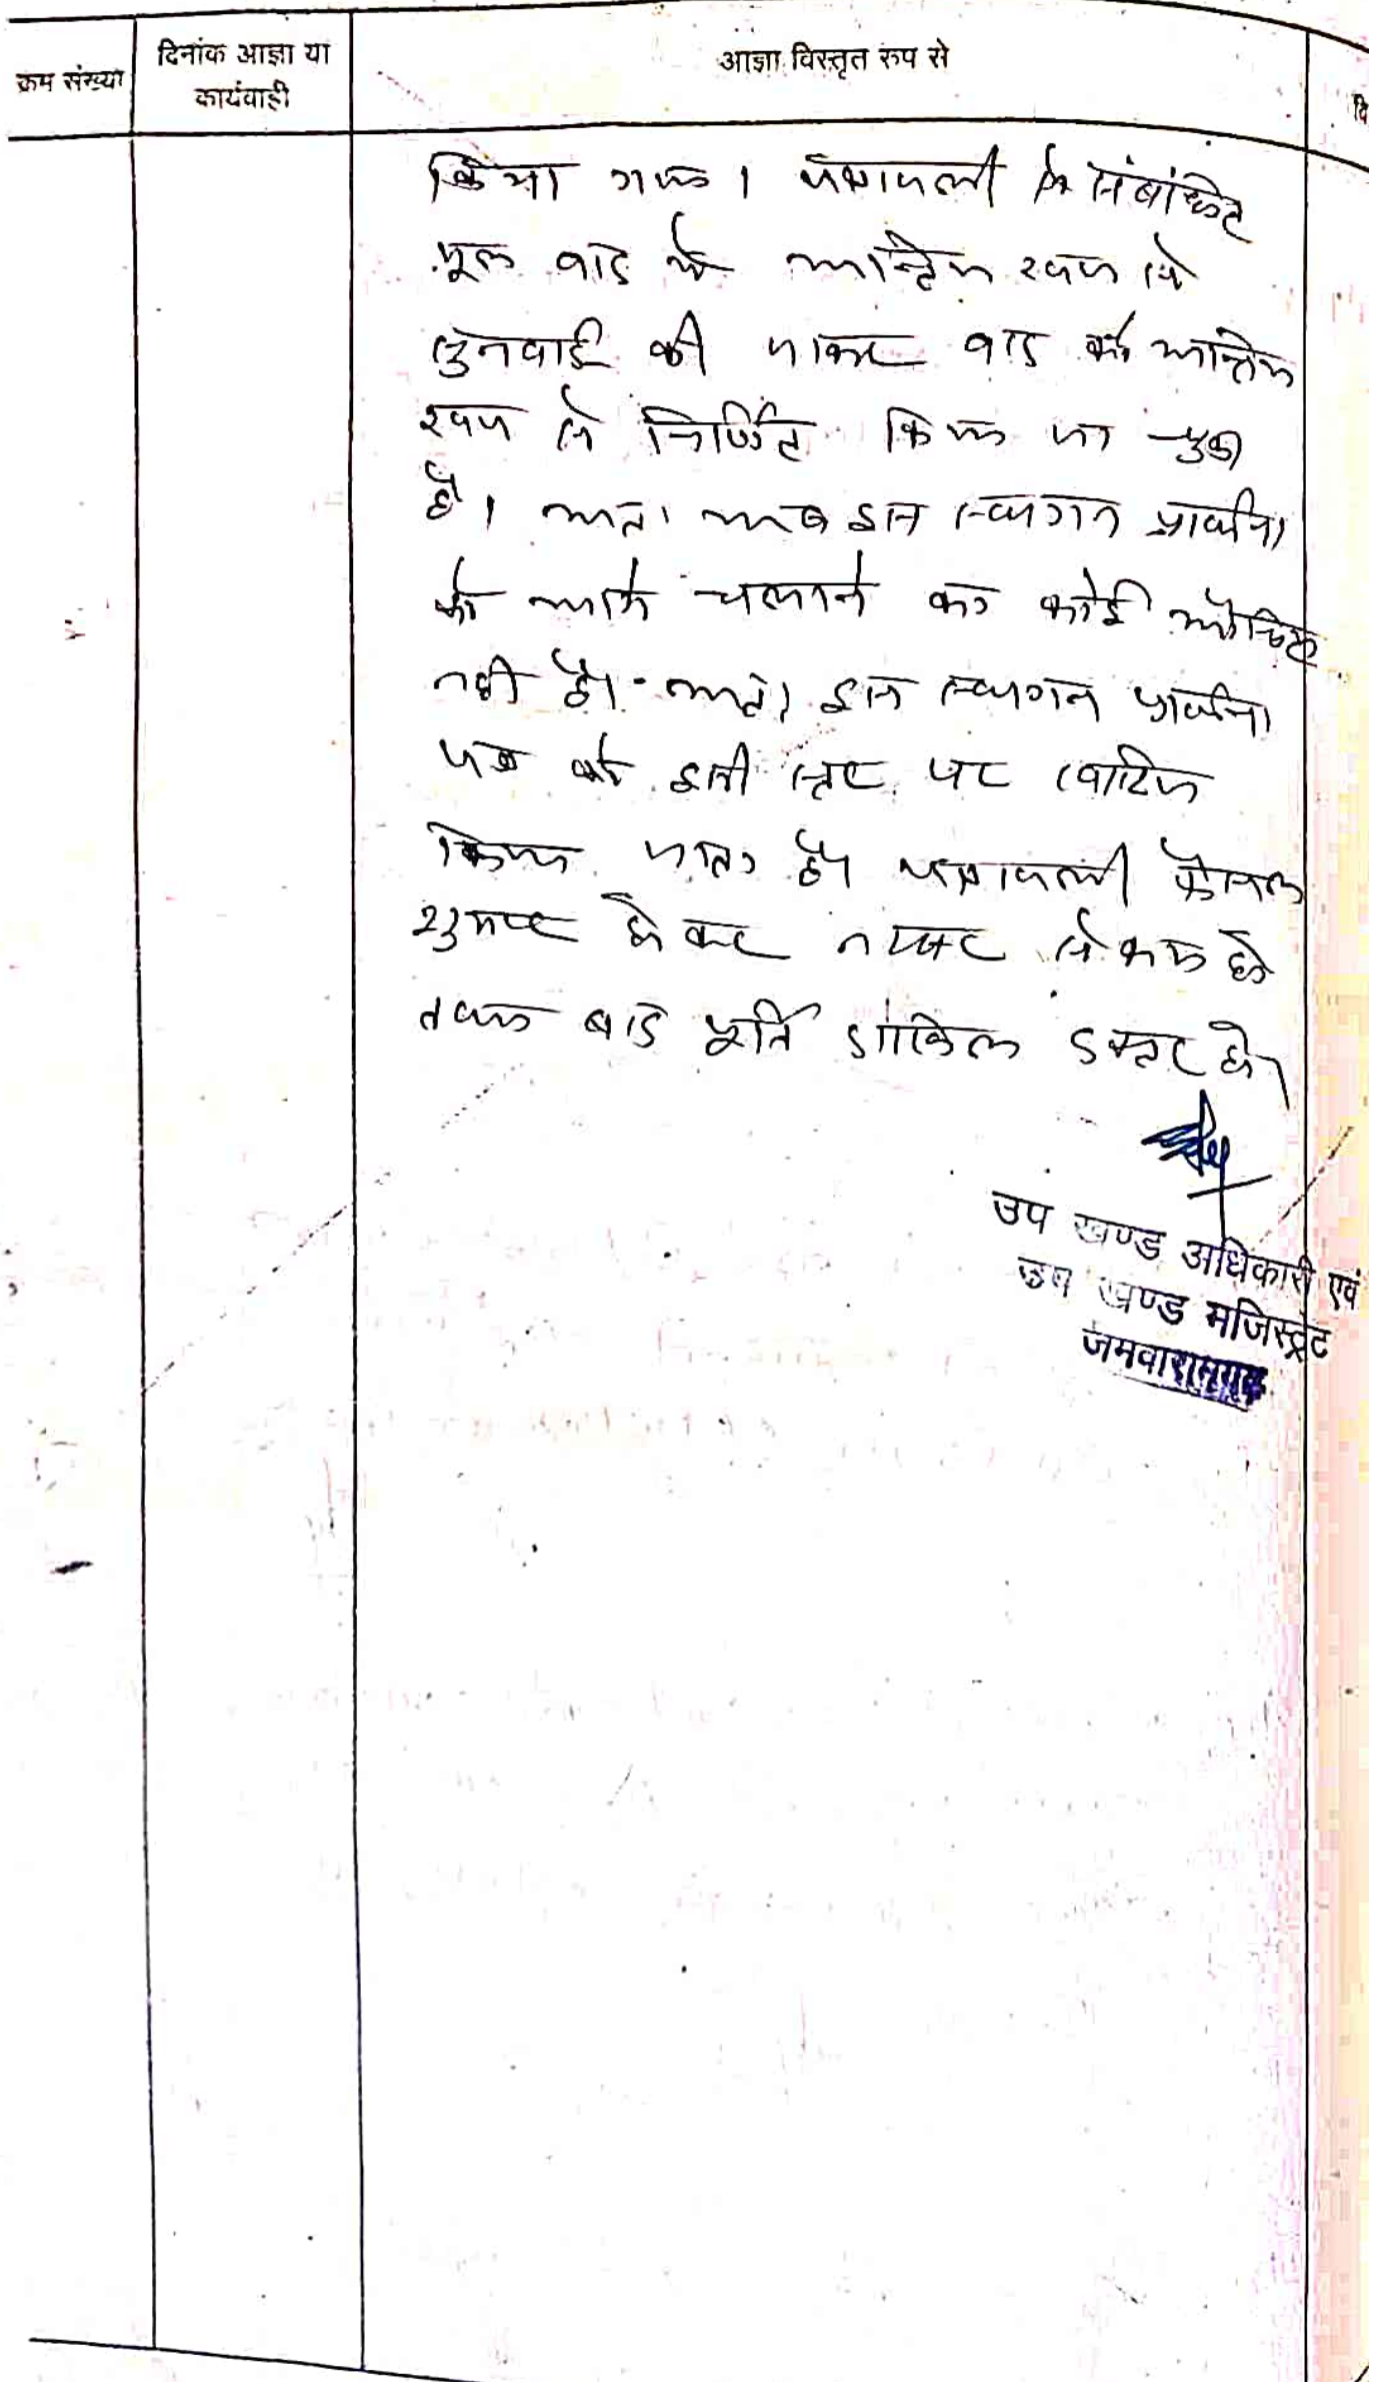 क्रम संख्या
दिनांक आज्ञा या
कार्यवाही
आज्ञा विस्तृत रुप से
दि
किया गया । पत्रावली से संबंधित
मूल वाद में अन्तिम रूप से
सुनवाई की जाकर वाद को अन्तिम
रूप से निर्णित किया जा चुका
है। अतः अब इस स्थगन प्रार्थना
को आगे चलाने का कोई औचित्य
नही है। अतः इस स्थगन प्रार्थना
पत्र को इसी स्तर पर खारिज
किया जाता है। पत्रावली फैसल
शुमार होकर नम्बर से कम हो
बाद पूर्ति दाखिल दफ्तर हो।
उप खण्ड अधिकारी एवं
उप खण्ड मजिस्ट्रेट
जमवारामगढ़